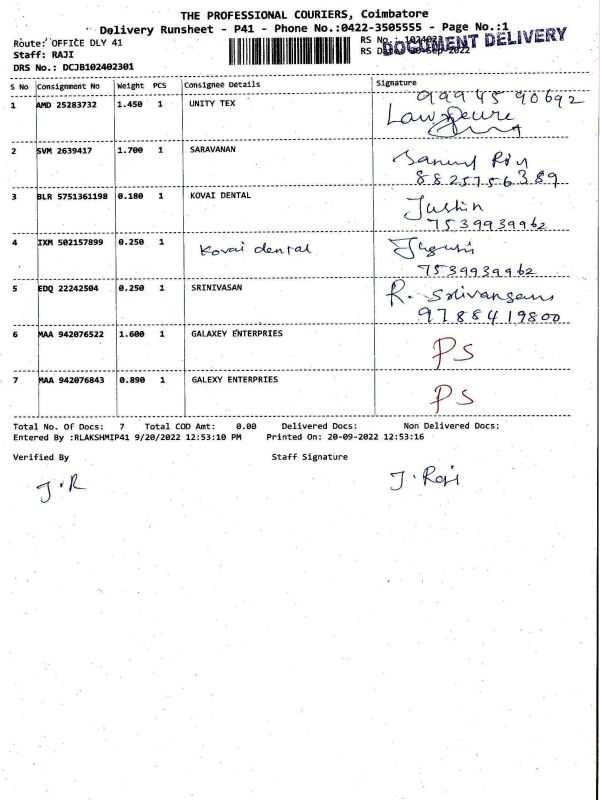 THE PROFESSIONAL COURIERS, Coimbatore
Delivery Runsheet - P41 - Phone No.:0422-3505555 - Page No.:1
Route: OFFICE DLY 41 RS No.:
DOCUMENT DELIVERY
Staff: RAJI RS 2022
DRS No.: DCJB102402301
S No Consignment No Weight PCS Consignee Details Signature
1 AMD 25283732 1.450 1 UNITY TEX 99945 90692
2 SVM 2639417 1.700 1 SARAVANAN
8825756389
3 BLR 5751361198 0.180 1 KOVAI DENTAL Justin
7539939962
4 IXM 502157899 0.250 1 Kovai dental
7539939962
5 EDQ 22242504 0.250 1 SRINIVASAN R.
9788419800
6 MAA 942076522 1.600 1 GALAXEY ENTERPRIES PS
7 MAA 942076843 0.890 1 GALEXY ENTERPRIES PS
Total No. Of Docs: 7 Total COD Amt: 0.00 Delivered Docs: Non Delivered Docs:
Entered By :RLAKSHMIP41 9/20/2022 12:53:10 PM Printed On: 20-09-2022 12:53:16
Verified By Staff Signature
J.R J. Raji